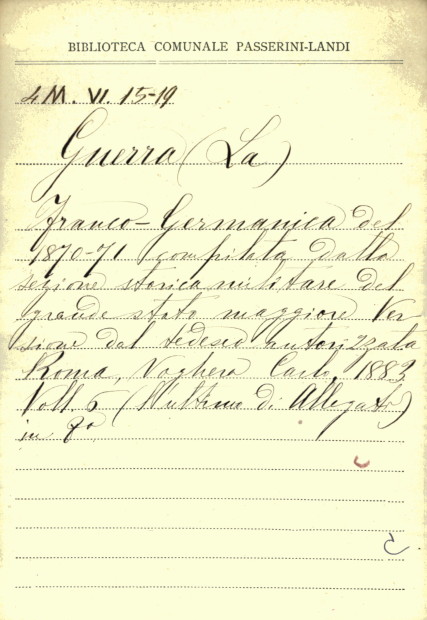 BIBLIOTECA COMUNALE PASSERINI-LANDI
4 M. VI. 15-19
Guerra (La)
Franco-Germanica del
1870-71 compilata dalla
sezione storica militare del
grande stato maggiore Ver-
sione dal tedesco autorizzata
Roma, Voghera Carlo, 1883
Voll. 5 (l'ultimo di Allegati)
in 8º